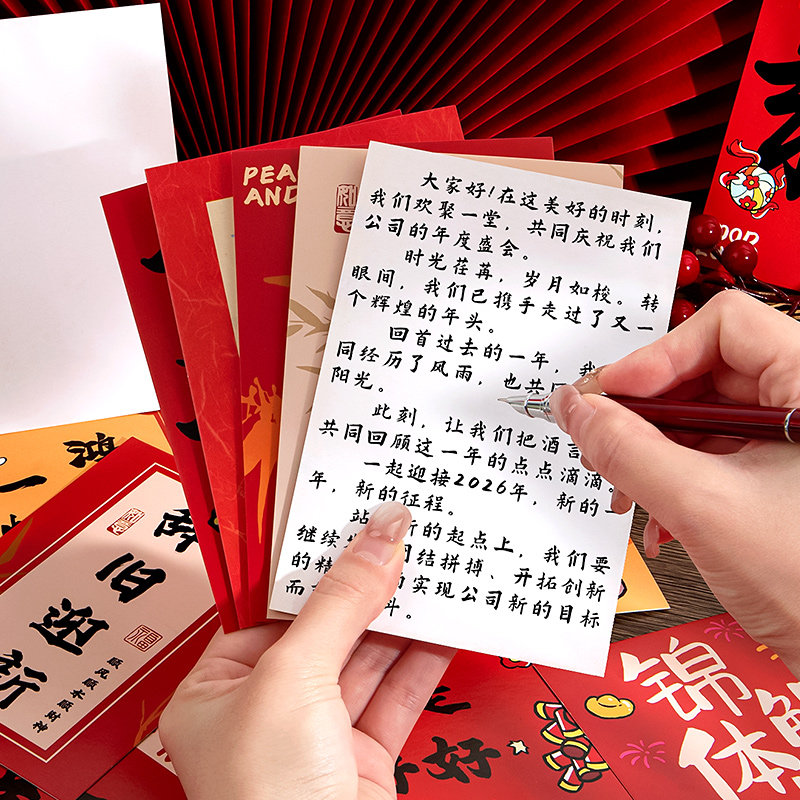 PEA
AND
如意
大家好!在这美好的时刻,
我们欢聚一堂,共同庆祝我们
公司的年度盛会。
时光荏苒,岁月如梭。转
眼间,我们已携手走过了又一
个辉煌的年头。
回首过去的一年,我
同经历了风雨,也共
阳光。
此刻,让我们把酒言
共同回顾这一年的点点滴滴。
一起迎接2026年,新的一
年,新的征程。
站 的起点上,我们要
继续 团结拼搏、开拓创新
的精 的实现公司新的目标
而 斗。
辞旧迎新
福
顺风顺水顺财神
好
锦
体